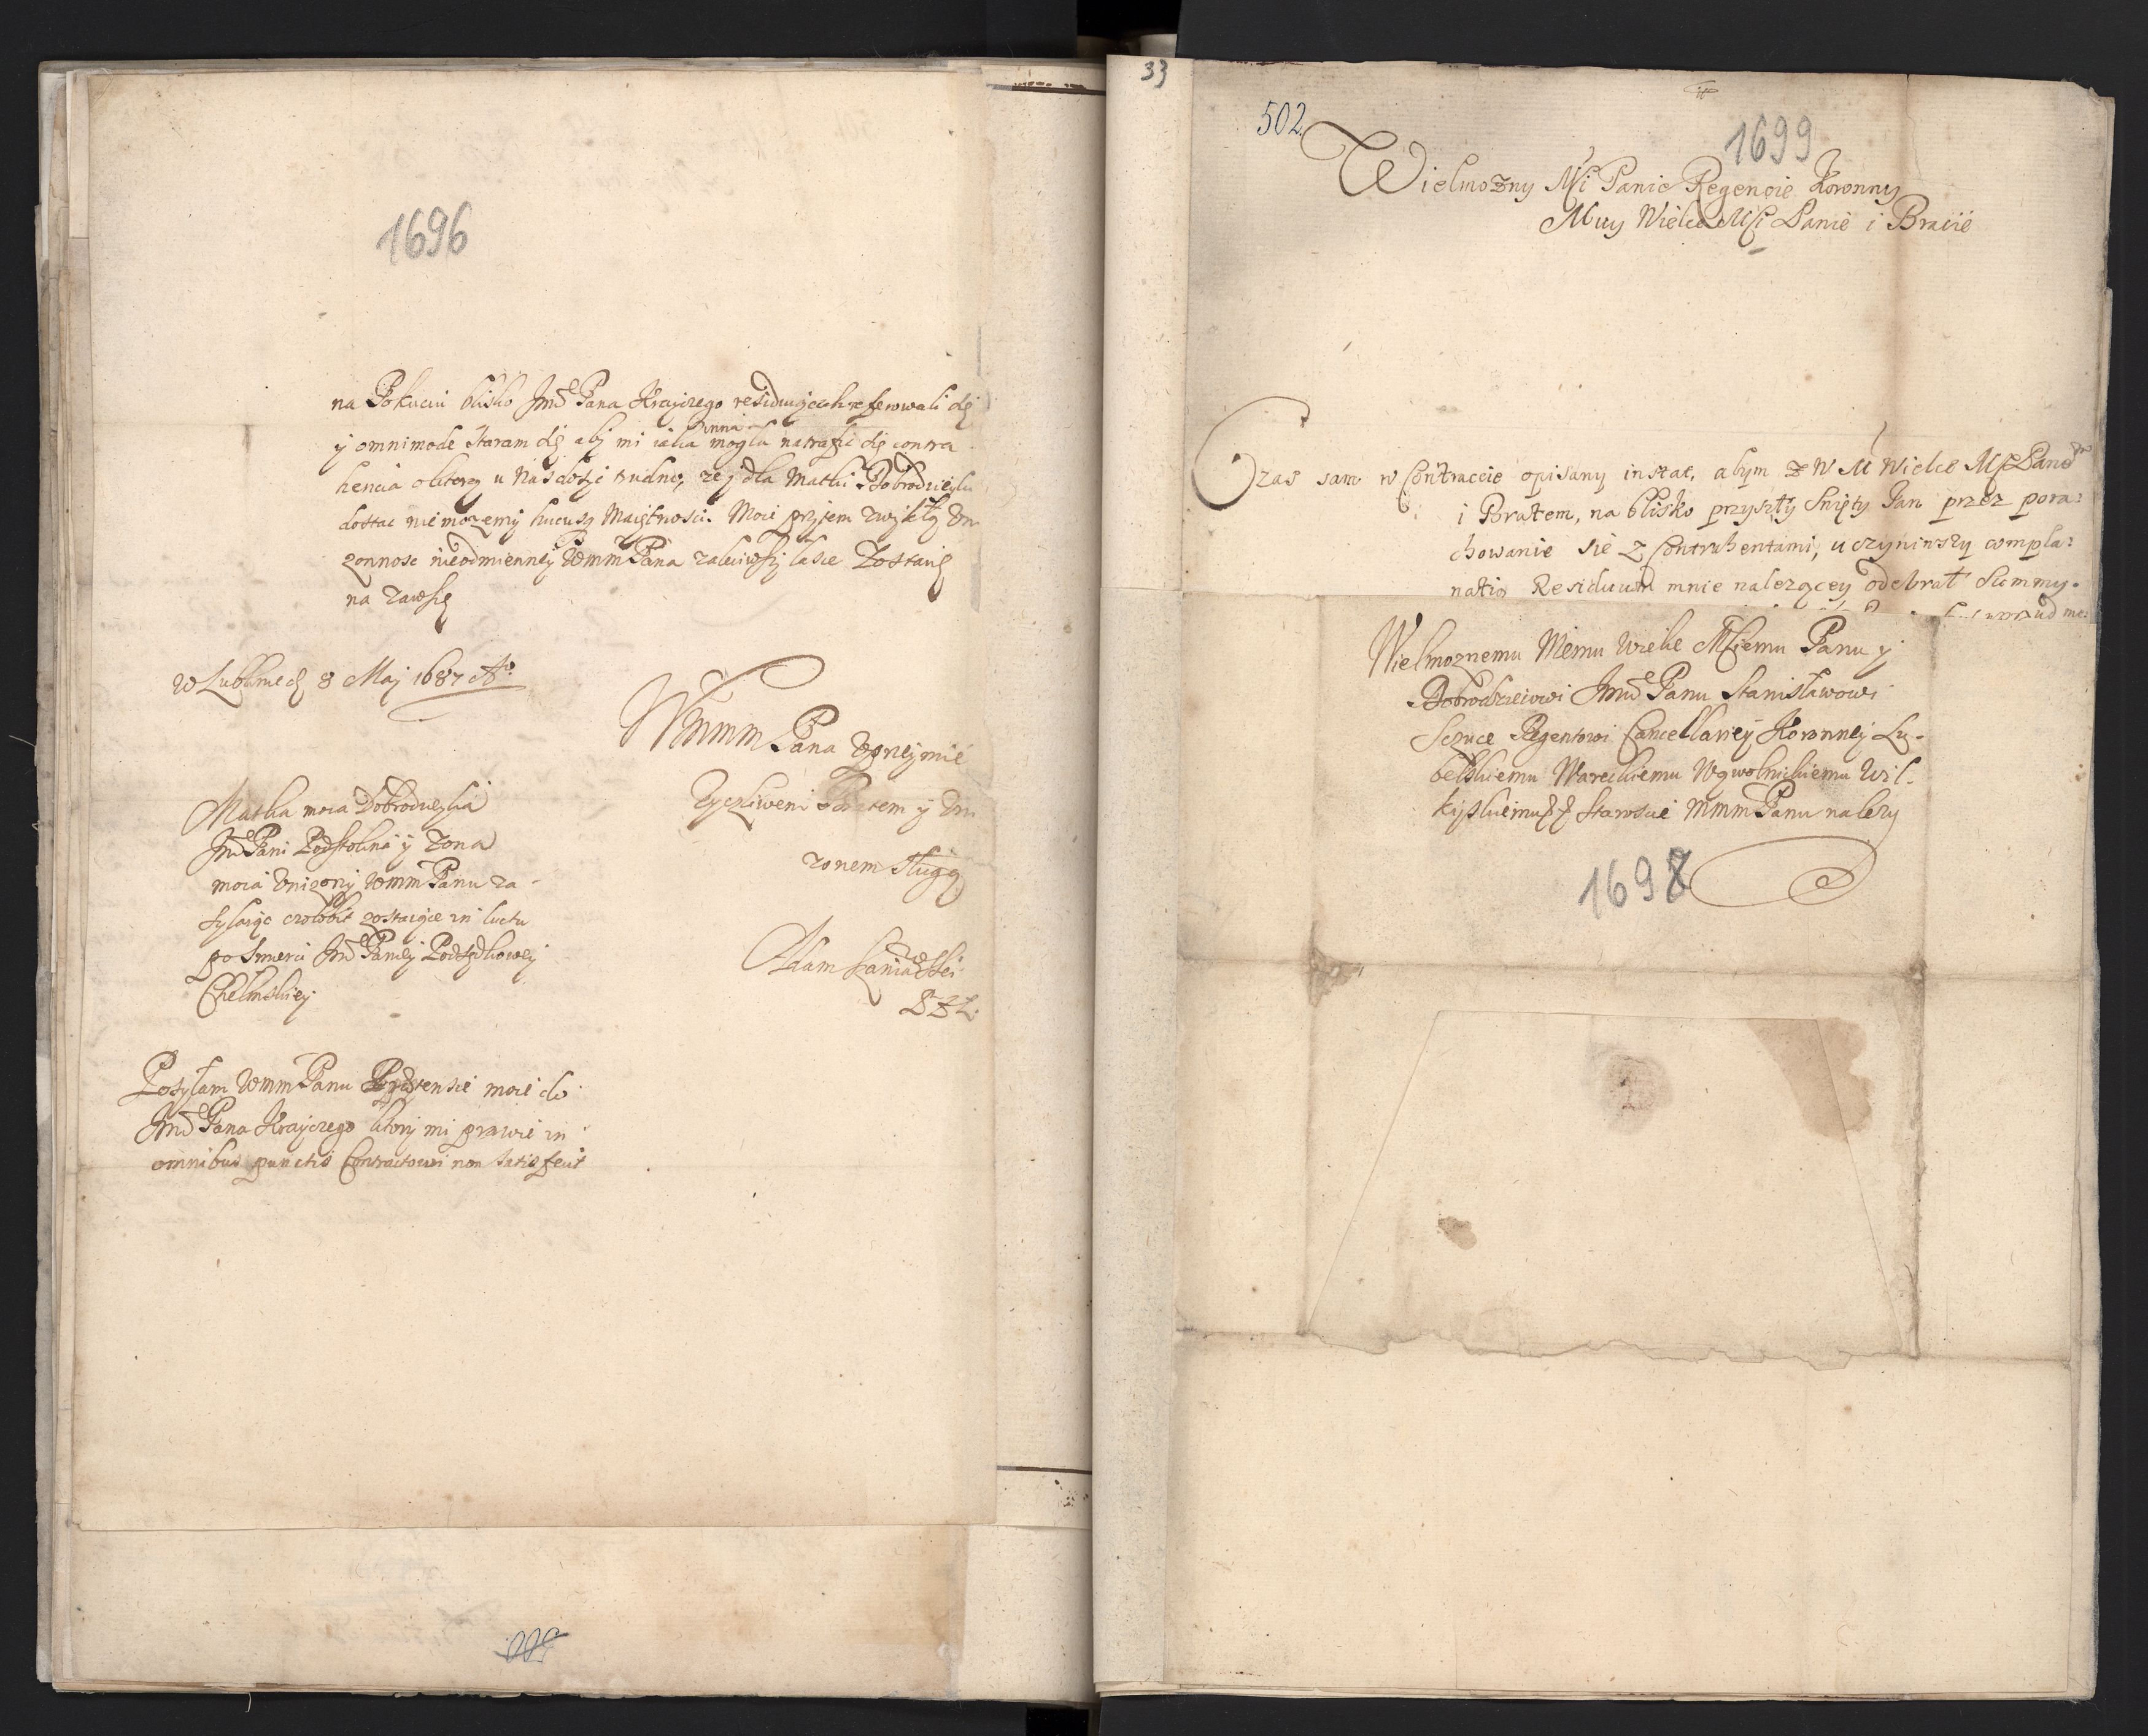 1696
na Pokuciu blisko Jmć Pana Krayczego residuiących referowali się
y omnimode staram się aby mi iaka inna mogła natrafić się contra
hencia o ktorą u nas dosyć trudno, ze y dla Matki Dobrodzieyki
dostac nie mozemy hucusq Maiętnosci. Moie przytem zwykłą Un
zonnosc nieodmienney WMM Pana zaleciwszy łasce Zostaię
na zawsze
w Lublinie d 8 Maj 1687 Ao
WMMM Pana Uprzeymie
Zyczliwem Bratem y Uni
zonem sługą
Adam
Matka moia Dobrodzieyka
Jmć Pani Podstolina y Zona
moia Unizony WMM Panu za-
syłaiąc czołobit zostaiące in luctu
po smierci Jmć Paniey Podsędkowey
Chełmskiey
Posyłam WMM Panu Praetensie moie do
Jmć Pana Krayczego ktory mi prawie in
omnibus punctis Contractowi non satisfecit
33
502.
1699
Wielmozny Mści Panie Regencie Koronny
Muy Wielce Mści Panie i Bracie
Czas sam w Contraccie opisany instat, abym z W M Wielce Mści Panem
i Bratem, na blisko przyszły Swięty Jan przez pora:
chowanie się z Contrahentami, uczyniwszy compla:
natio Residuum mnie nalezącey odebrał Summy.
Wielmoznemu Memu Wielce Mściemu Panu y
Dobrodzieiowi Jmć Panu Stanisławowi
Sczuce Regentowi Cancellariey Koronney Lu-
belskiemu Wareckiemu Wąwolnickiemu Wil-
kiyskiemu Staroscie MMM Panu nalezy
1698